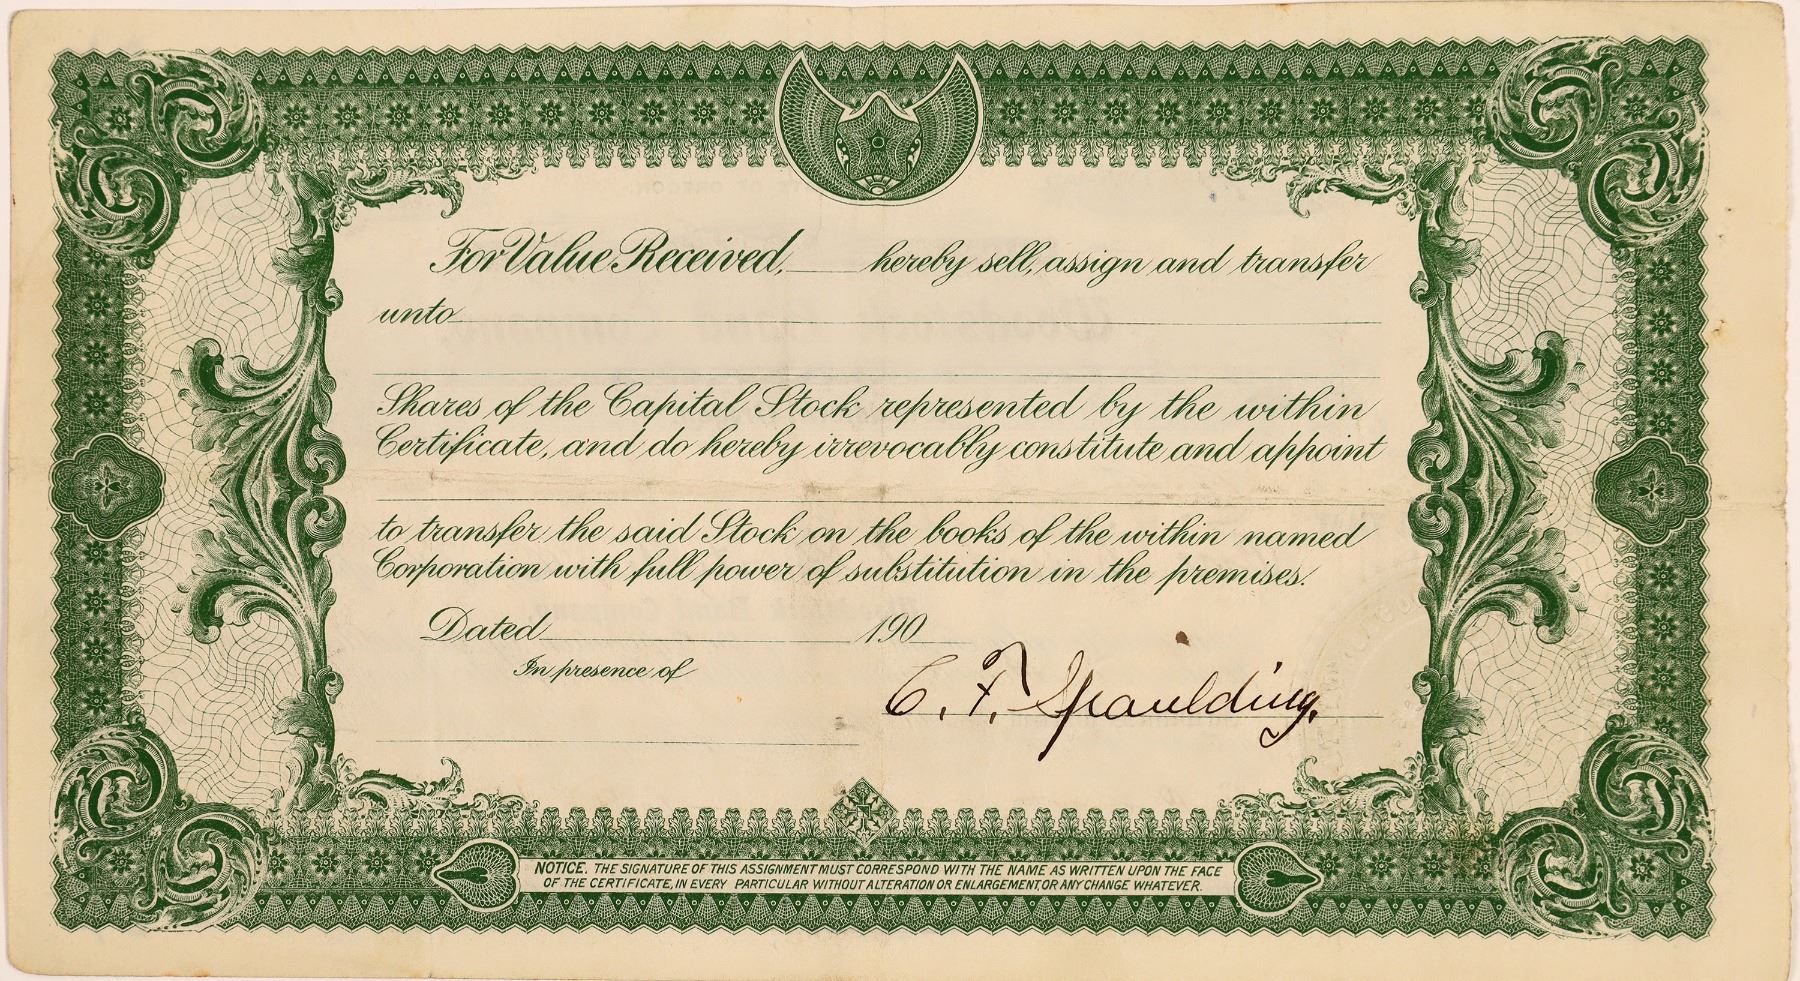 For Value Received, hereby sell, assign and transfer
unto
Shares of the Capital Stock represented by the within
Certificate, and do hereby irrevocably constitute and appoint
to transfer the said Stock on the books of the within named
Corporation with full power of substitution in the premises.
Dated 190
In presence of
C. F. Spaulding.
NOTICE. THE SIGNATURE OF THIS ASSIGNMENT MUST CORRESPOND WITH THE NAME AS WRITTEN UPON THE FACE
OF THE CERTIFICATE, IN EVERY PARTICULAR WITHOUT ALTERATION OR ENLARGEMENT, OR ANY CHANGE WHATEVER.